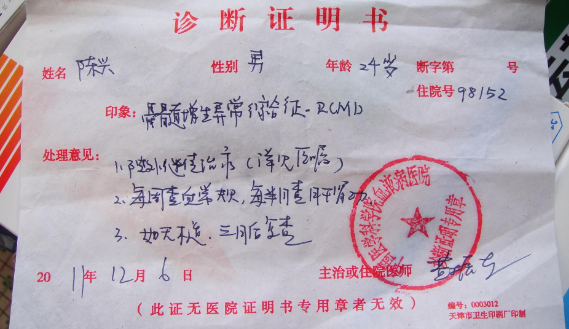 诊断证明书
姓名 陈兴 性别 男 年龄 24岁 断字第 号
住院号 98152
印象: 骨髓增生异常综合征-RCMD
处理意见: 1. 继续治疗(详见医嘱)
2. 每周查血常规,每半月查肝肾功
3. 如无不适,三月后复查
2011年12月6日 主治或住院医师
(此证无医院证明书专用章者无效)
编号: 0003012
天津市卫生印刷厂印制
医学科学院血液病医院
诊断证明专用章